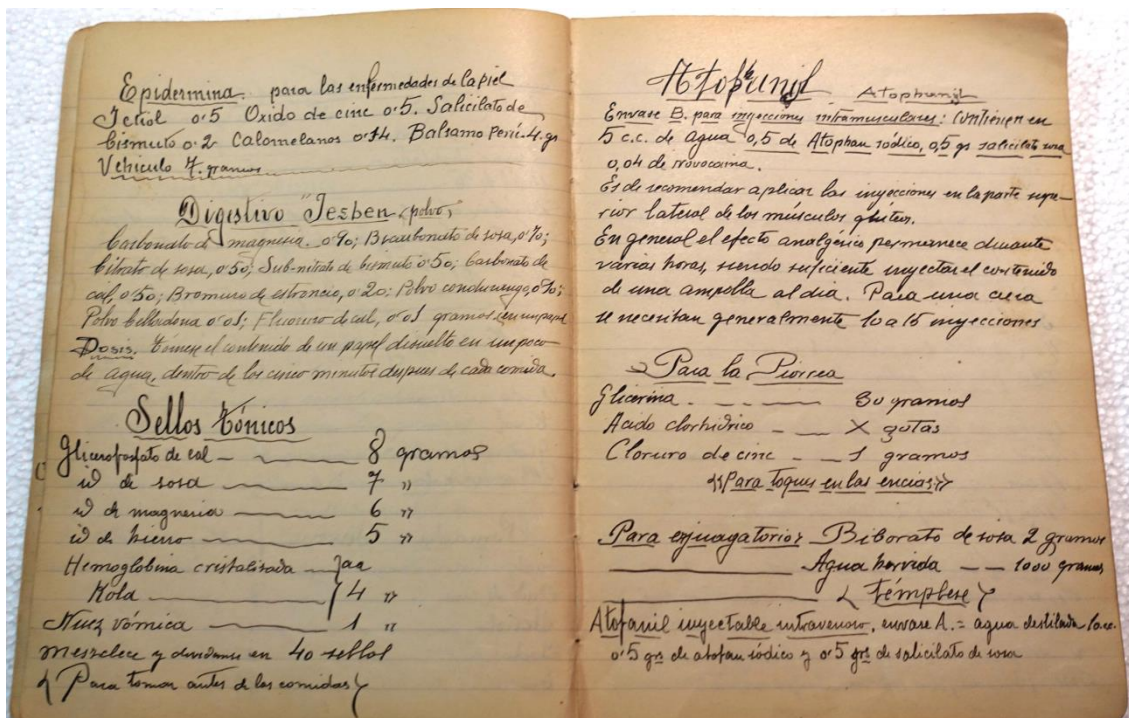 Epidermina. para las enfermedades de la piel
Ictiol 0'5 Oxido de cinc 0'5. Salicilato de
bismuto 0'2 Calomelanos 0'14. Balsamo Perú. 4. gr
Vehiculo 7. gramos
Digestivo "Jesben (polvo)
Carbonato de magnesia. 0'90; Bicarbonato de sosa, 0'70;
Citrato de sosa, 0'50; Sub-nitrato de bismuto 0'50; Carbonato de
cal, 0'50; Bromuro de estroncio, 0'20; Polvo condurango, 0'10;
Polvo belladona 0'01; Fluoruro de cal, 0'01 gramos en un papel
Dosis. Tómese el contenido de un papel disuelto en un poco
de agua, dentro de los cinco minutos despues de cada comida.
Sellos tónicos
Glicerofosfato de cal — 8 gramos
id de sosa — 7 "
id de magnesia — 6 "
id de hierro — 5 "
Hemoglobina cristalisada — } aa
Kola — } 4 "
Nuez vómica — 1 "
mezclese y dividanse en 40 sellos
{ Para tomar antes de las comidas }
Atophanil Atophanil
Envase B. para inyecciones intramusculares: Contienen en
5 c.c. de agua 0,5 de Atophan sódico, 0,5 gs salicilato sosa
0,04 de novocaina.
Es de recomendar aplicar las inyecciones en la parte supe-
rior lateral de los músculos glúteos.
En general el efecto analgésico permanece durante
varias horas, siendo suficiente inyectar el contenido
de una ampolla al dia. Para una cura
se necesitan generalmente 10 a 15 inyecciones
Para la Piorrea
Glicerina. — — — 30 gramos
Acido clorhidrico — — X gotas
Cloruro de cinc — — 1 gramos
«Para toques en las encias»
Para enjuagatorios Biborato de sosa 2 gramos
Agua hervida — — 1000 gramos
{ témplese }
Atofanil inyectable intravenoso, envase A. = agua destilada 10 c.c.
0'5 grs de atofan sódico y 0'5 grs de salicilato de sosa